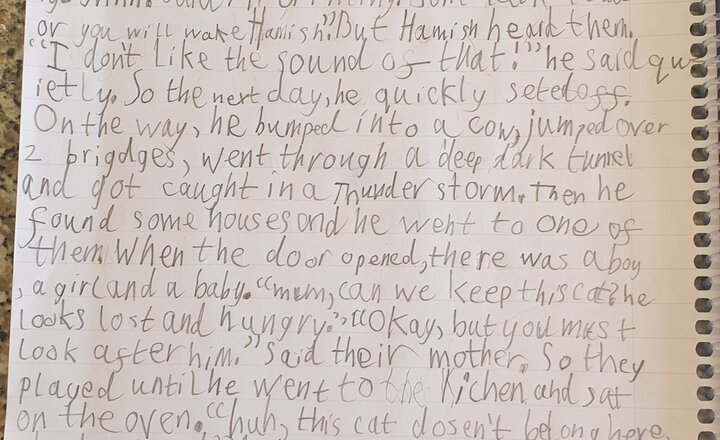 or you will wake Hamish."But Hamish heard them.
"I don't like the sound of that!" he said qu
ietly. So the next day, he quickly seted off.
On the way, he bumped into a cow, jumped over
2 brigdges, went through a deep dark tunnel
and got caught in a Thunder storm. Then he
found some houses and he went to one of
them. When the door opened, there was a boy
, a girl and a baby. "mum, can we keep this cat? he
looks lost and hungry." "Okay, but you must
look after him." Said their mother. So they
played until he went to the Kichen and sat
on the oven. "huh, this cat dosen't belong here.